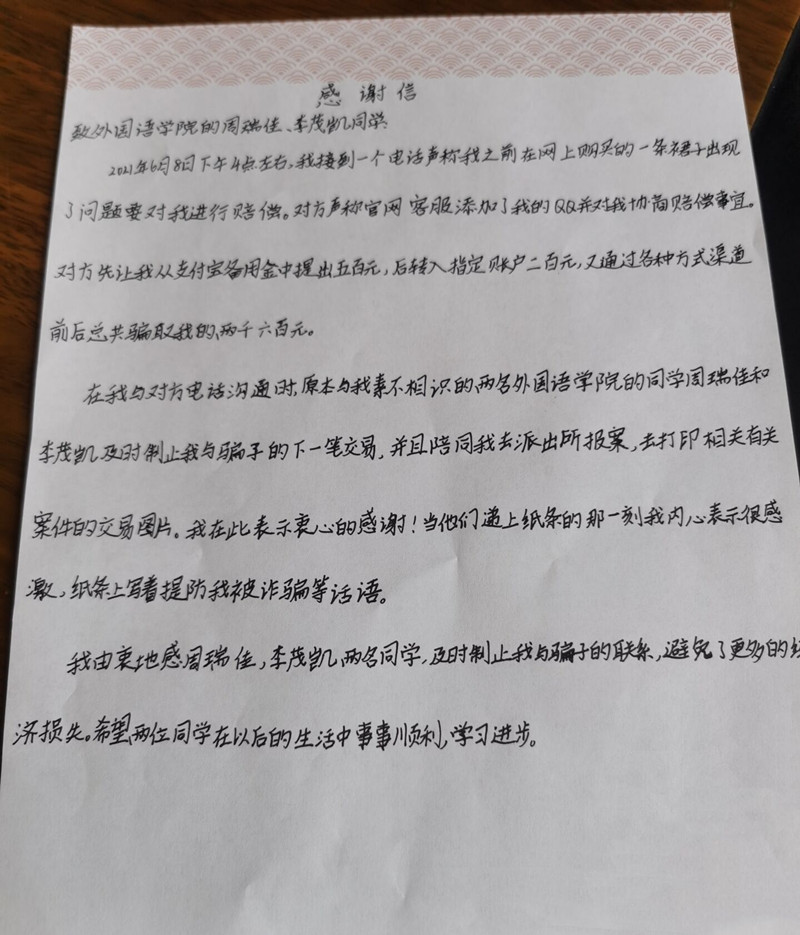 感谢信
致外国语学院的周瑞佳、李茂凯同学
2021年6月8日下午4点左右,我接到一个电话声称我之前在网上购买的一条裙子出现
了问题要对我进行赔偿。对方声称官网客服添加了我的QQ并对我协商赔偿事宜。
对方先让我从支付宝备用金中提出五百元,后转入指定账户二百元,又通过各种方式渠道
前后总共骗取我的两千六百元。
在我与对方电话沟通时,原本与我素不相识的两名外国语学院的同学周瑞佳和
李茂凯及时制止我与骗子的下一笔交易,并且陪同我去派出所报案,去打印相关有关
案件的交易图片。我在此表示衷心的感谢!当他们递上纸条的那一刻我内心表示很感
激,纸条上写着提防我被诈骗等话语。
我由衷地感周瑞佳,李茂凯两名同学,及时制止我与骗子的联系,避免了更多的经
济损失。希望两位同学在以后的生活中事事顺利,学习进步。